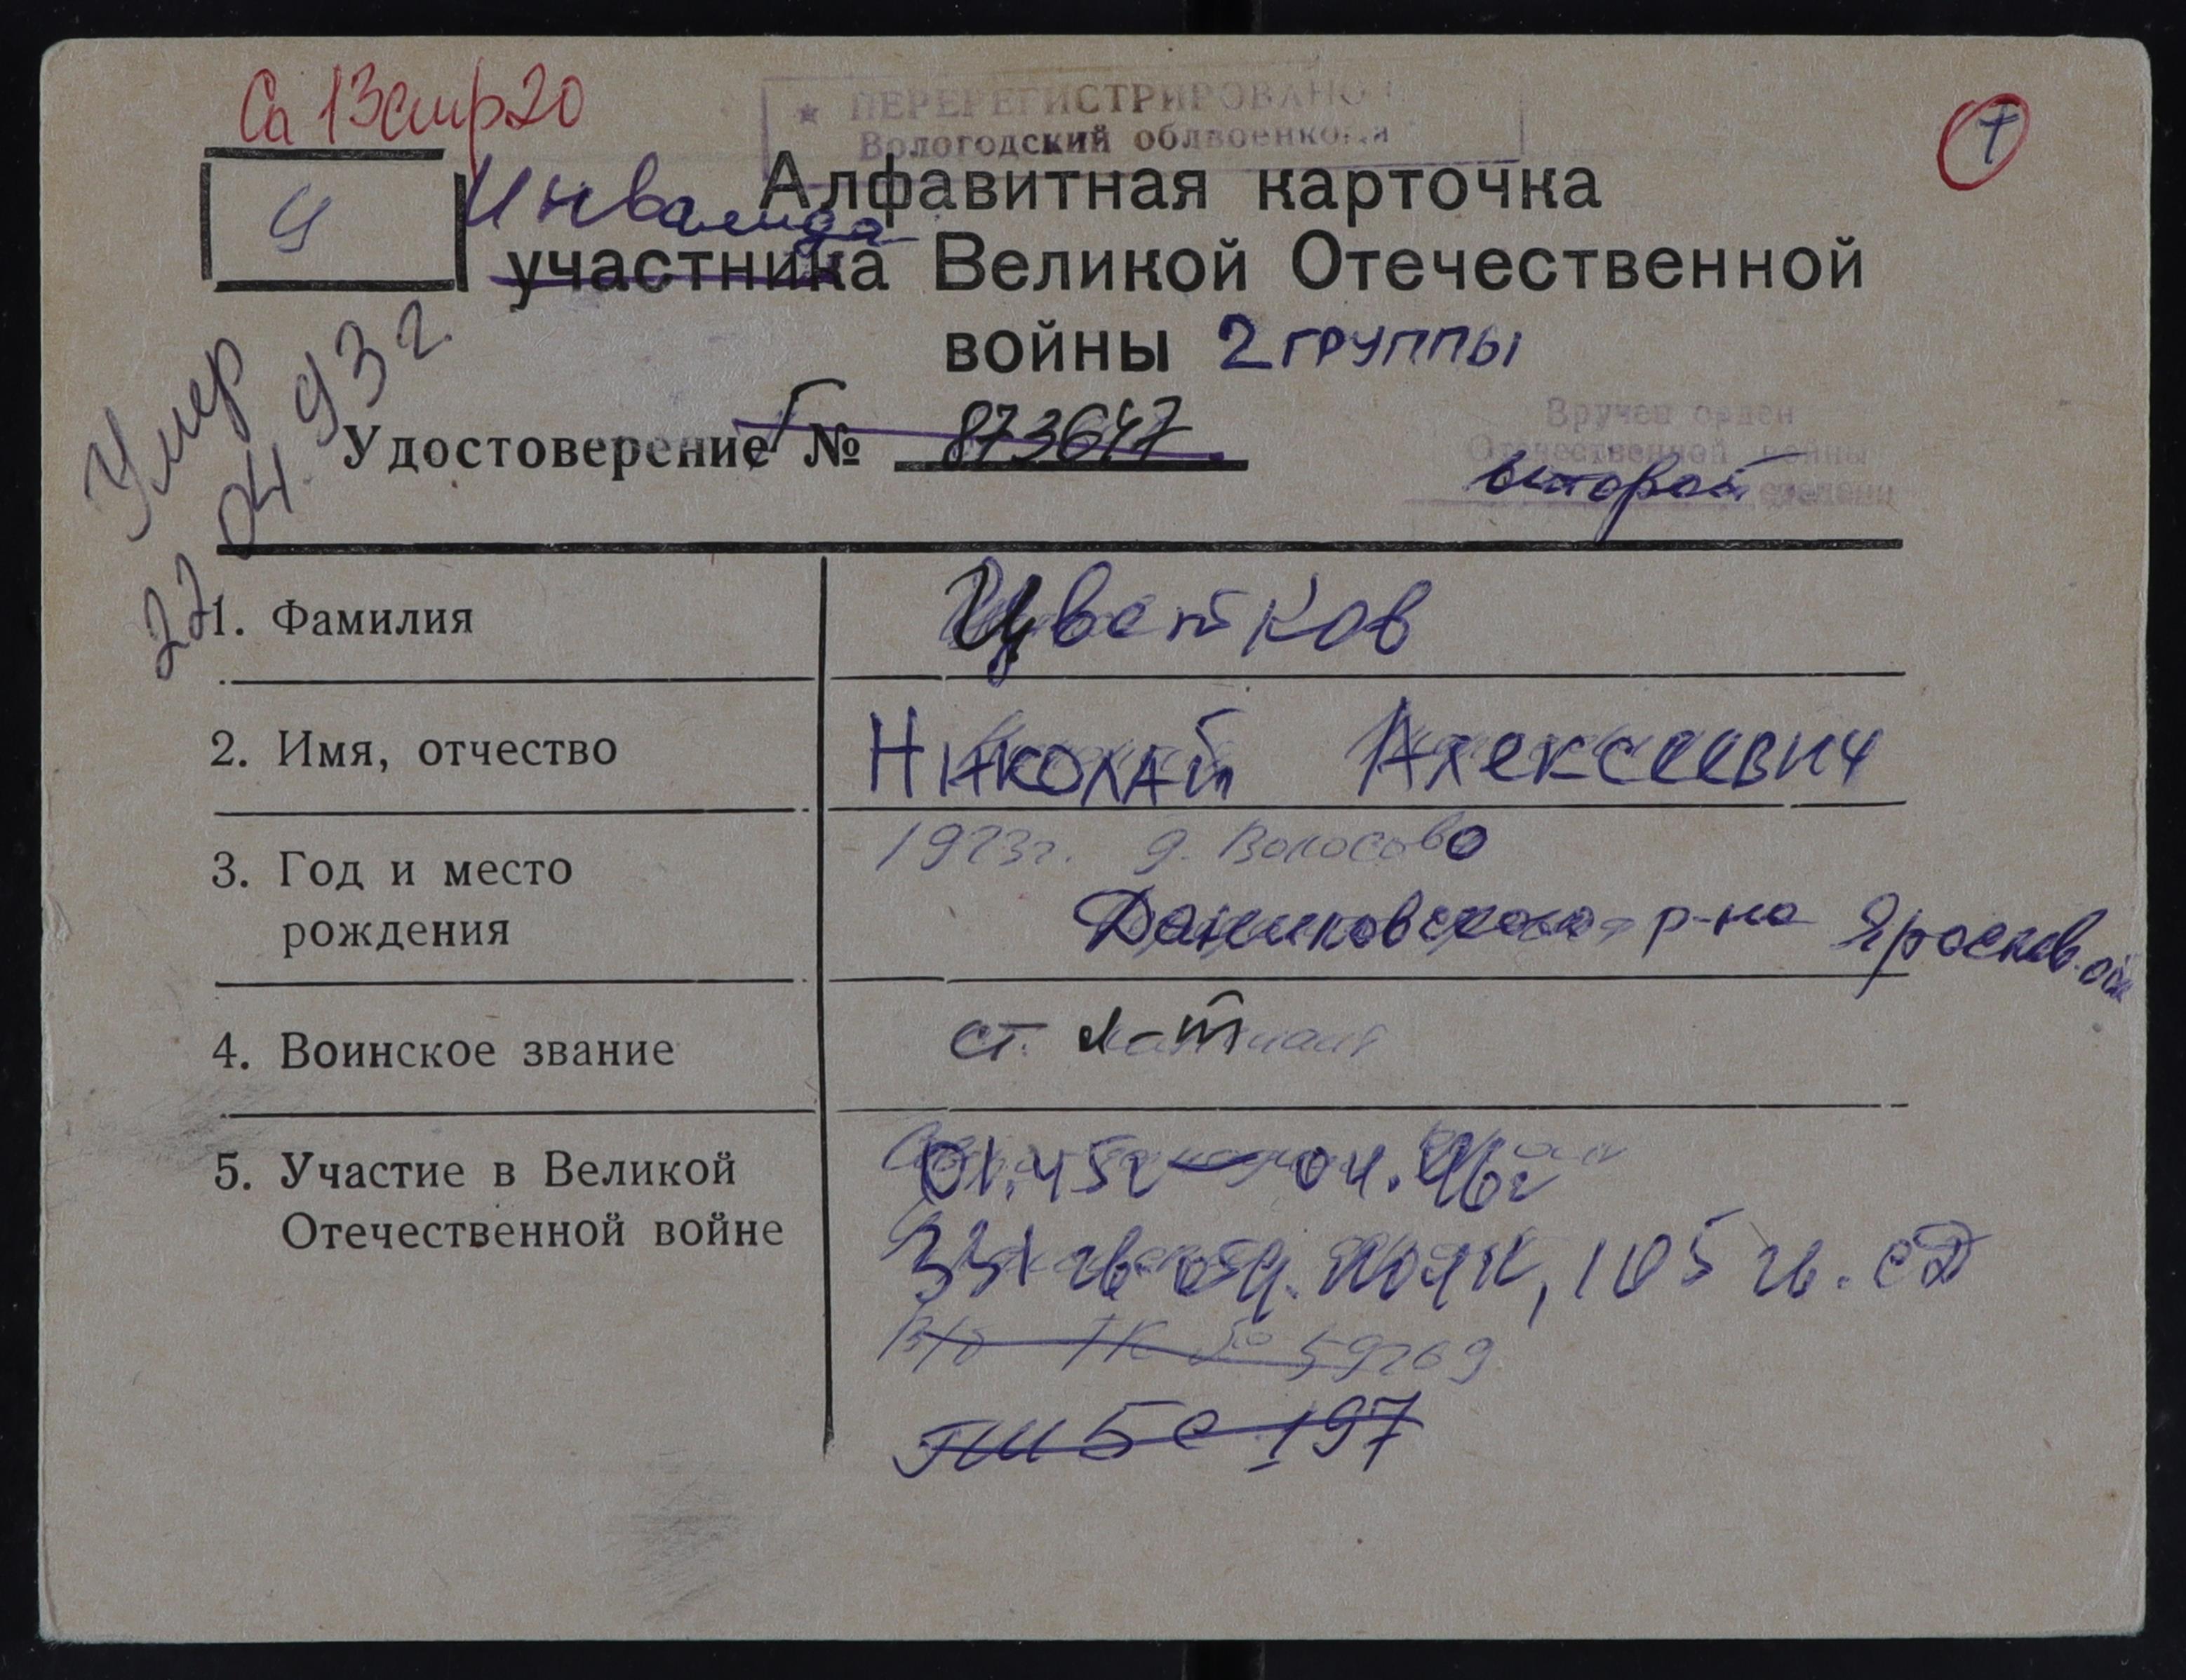 Са 13 стр 20
ПЕРЕРЕГИСТРИРОВАНО
Вологодский облвоенкома
Т
Ц
Алфавитная карточка
Инвалида
участника Великой Отечественной
войны 2 группы
Удостоверение Г № 873647
Вручен орден
Отечественной войны
второй степени
Умер
22 04. 93 г.
1. Фамилия Цветков
2. Имя, отчество Николай Алексеевич
3. Год и место 1923г. д. Волосово
рождения Даниловского р-на Ярослав. обл
4. Воинское звание ст. лейтенант
5. Участие в Великой 01.45г – 04.46г
Отечественной войне 331 гв 105 гв. СД
№ 59269
с 197